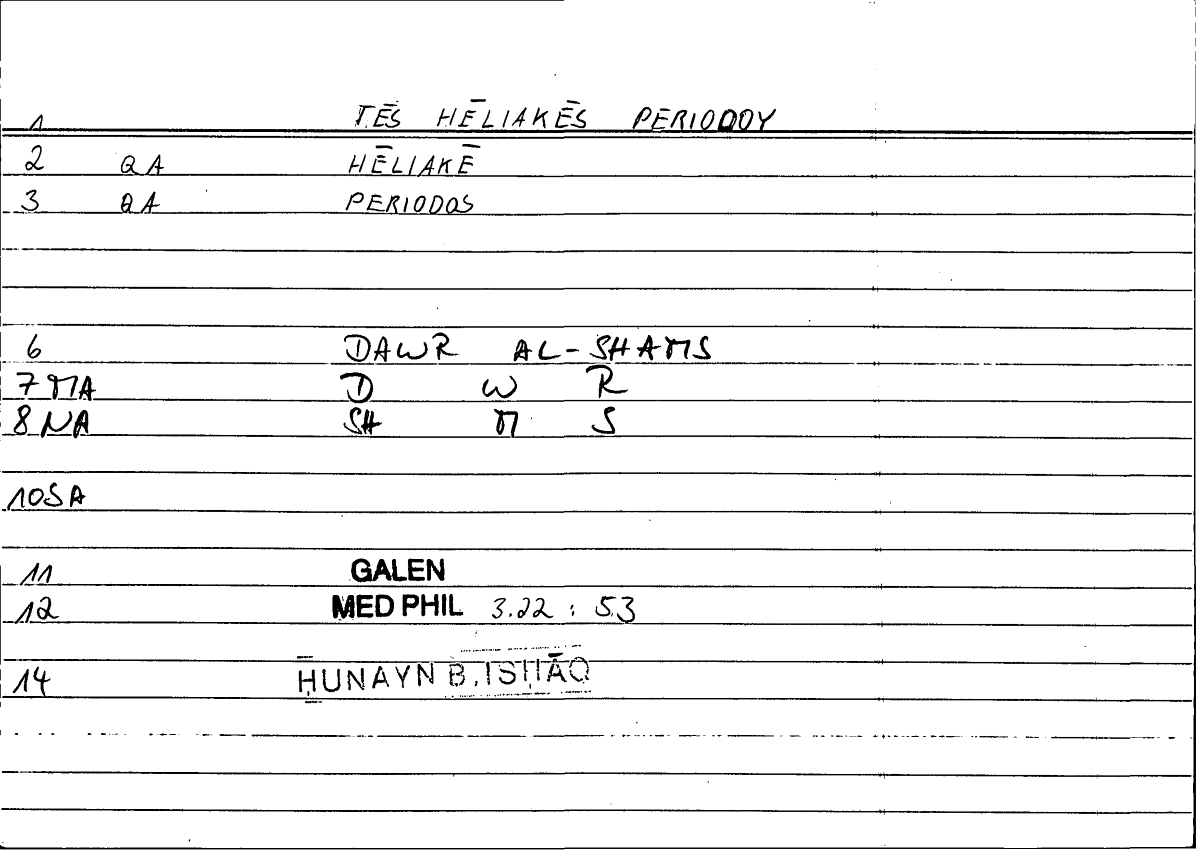 1 TĒS HĒLIAKĒS PERIODOY
2 QA HĒLIAKĒ
3 QA PERIODOS
6 DAWR AL-SHAMS
7 MA D W R
8 NA SH M S
10 SA
11 GALEN
12 MED PHIL 3.22 : 5.3
14 ḤUNAYN B. ISḤĀQ